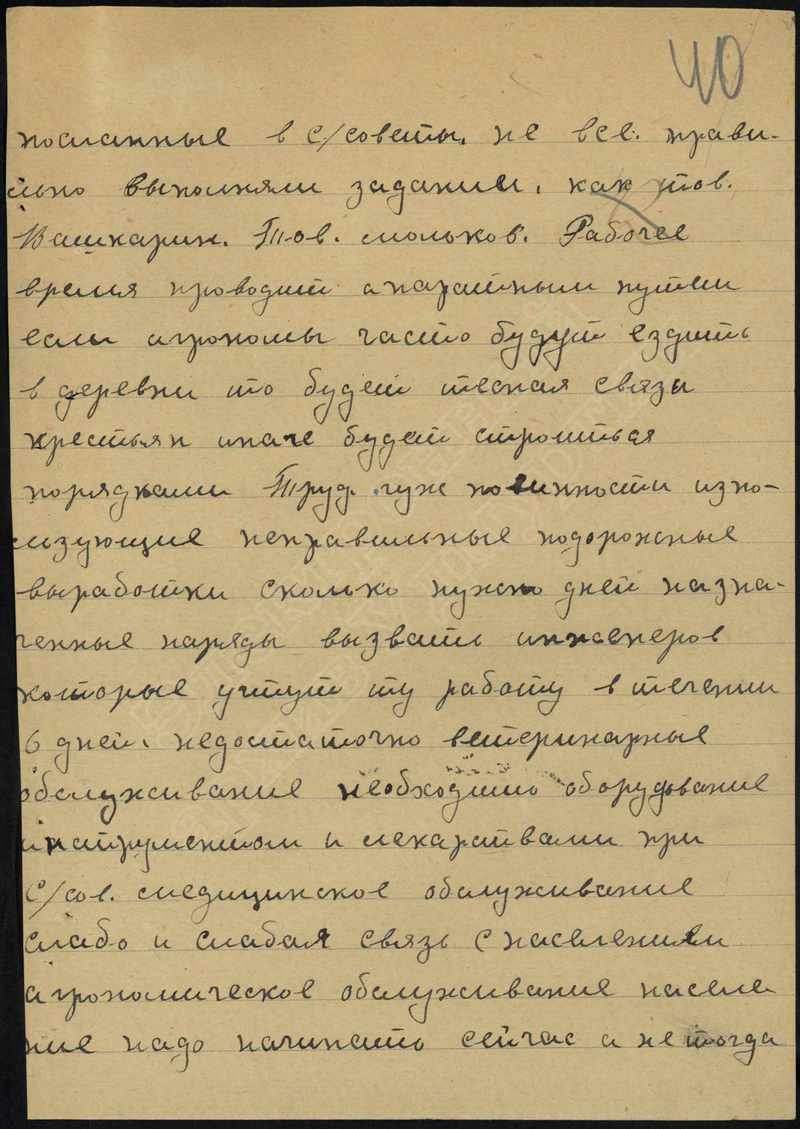 40
посланные в с/советы. не все. прави-
льно выполняли задании, как тов.
Вашкарин. Тов. мольков. Рабочее
время проводит апаратным путем
если агрономы часто будут ездить
в деревни то будет тесная связи
крестьян иначе будет строиться
порядками Труд. гуж повинности испо-
льзующие неправильные подорожные
выработки сколько нужно дней назна-
ченные наряды вызвать инженеров
которые учтут ту работу в течении
6 дней. недостаточно ветеринарные
обслуживание необходимо оборудование
инструментом и лекарствами при
С/сов. медицинское обслуживание
слабо и слабая связь с населением
агрономическое обслуживание населе
ние надо начинать сейчас а не тогда